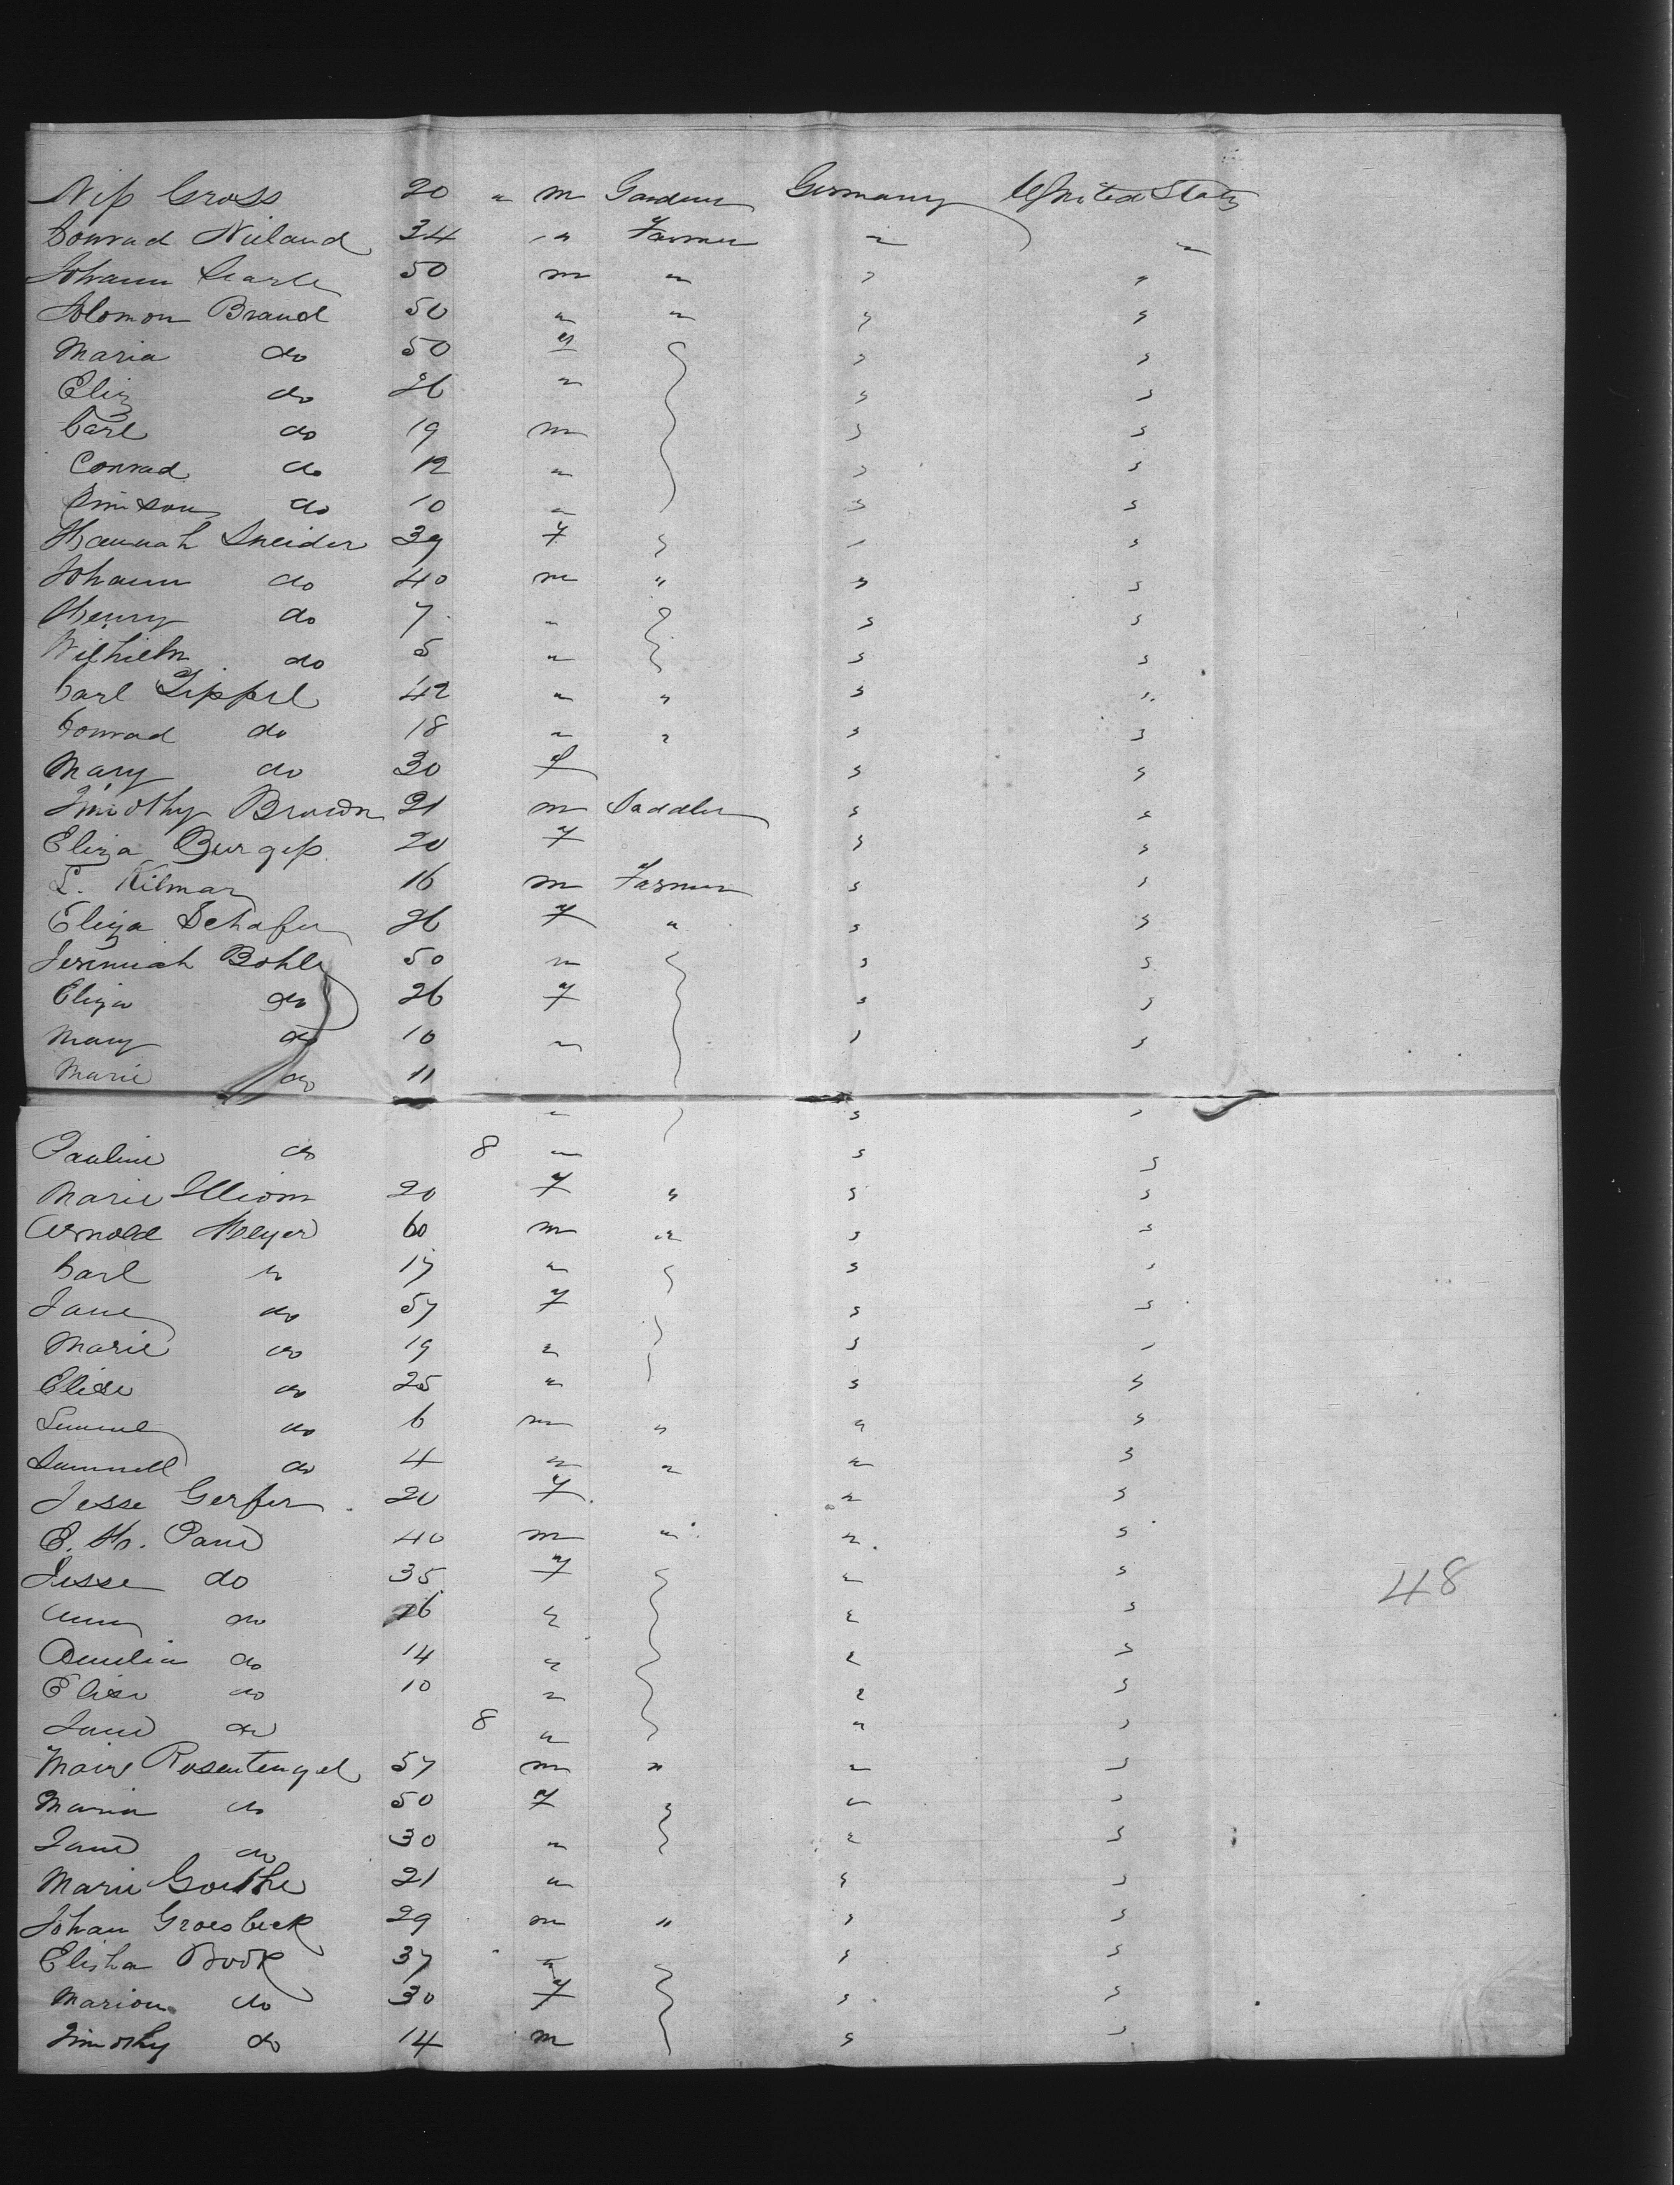 Niss Gross 20 " m Gardener Germany United States
Conrad Nieland 34 " Farmer " "
Johann Searle 50 m " " "
Solomon Brand 50 " " " "
Maria do 50 " " "
Eliz do 26 " " "
Carl do 19 m " "
Conrad do 12 " " "
Simson do 10 " " "
Hannah Sneider 39 f " "
Johann do 40 m " " "
Henry do 7 " " "
Wilhielm do 5 " " "
Carl Lippel 42 " " " "
Conrad do 18 " " " "
Mary do 30 f " "
Timothy Brown 21 m Saddler " "
Eliza Burgess 20 f " "
L. Kilmar 16 m Farmer " "
Eliza Schafer 26 f " " "
Jeremiah Bohle 50 m " "
Eliza do 26 f " "
Mary do 10 " " "
Marie do 11 " " "
Pauline do 8 " " "
Marie 20 f " " "
Arnold Meyer 60 m " " "
Carl do 17 " " "
Jane do 57 f " "
Marie do 19 " " "
Elise do 25 " " "
do 6 m " " "
Sammell do 4 " " " "
Jesse Gerfer 20 f " "
E. H. Pane 40 m " " "
Jesse do 35 f " "
Anny do 16 " " "
Amelia do 14 " " "
Elise do 10 " " "
Jane do 8 " " "
48
Rosentengel 57 m " " "
Maria do 50 f " "
Jane do 30 " " "
Marie Goethe 21 " " "
Johan Groesbeck 29 m " " "
Elisha Book 37 " " "
Marion do 30 f " "
Timothy do 14 m " "